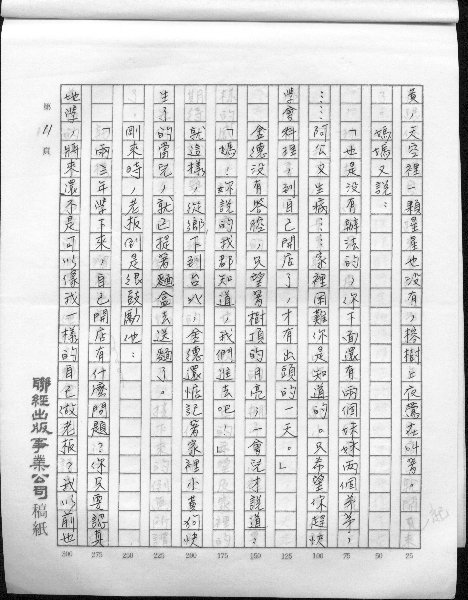 黃，天空裡一顆星星也沒有，榕樹上夜鶯在叫著。
媽媽又說：
「也是沒有辦法的，你下面還有兩個妹妹兩個弟弟，
……阿公又生病……家裡困難你是知道的。只希望你趕快
學會料理，到自己開店了，才有出頭的一天。」
金德沒有答腔，只望著樹頂的月亮，一會兒才說道：
「媽！妳說的我都知道，我們進去吧！」
就這樣，從鄉下到台北，金德還惦記著家裡小黃狗快
生子的當兒，就已提著麵盒去送麵了。
剛來時，老板倒是很鼓勵他：
「兩三年學下來，自己開店有什麼問題？你只要認真
地學，將來還不是可以像我一樣的自己做老板？我以前也
第 11 頁
聯經出版事業公司 稿紙
25
50
75
100
125
150
175
200
225
250
275
300